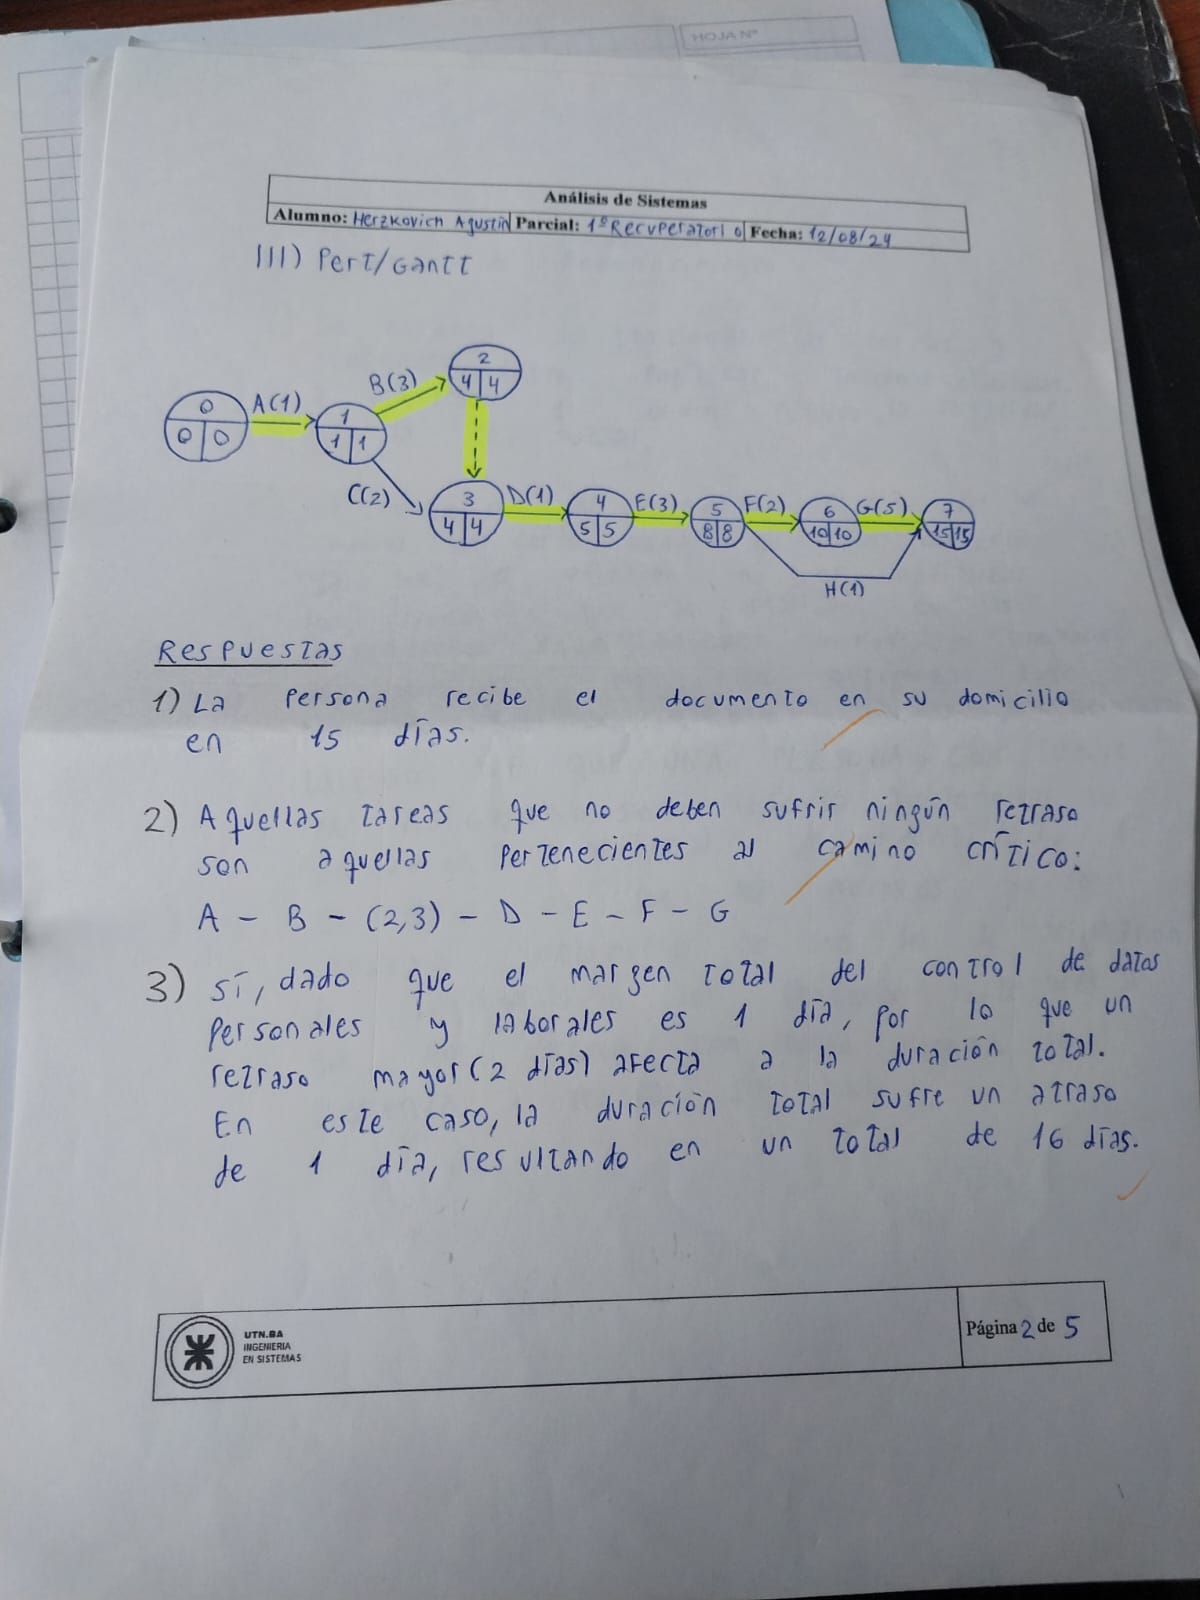 HOJA Nº
Análisis de Sistemas
Alumno: Herzkovich Agustín Parcial: 1º Recuperatorio Fecha: 12/08/24
III) Pert/Gantt
2
4 4
B(3)
0
0 0
A(1)
1
1 1
C(2)
3
4 4
D(1)
4
5 5
E(3)
5
8 8
F(2)
6
10 10
G(5)
7
15 15
H(1)
Respuestas
1) La persona recibe el documento en su domicilio
en 15 días.
2) Aquellas tareas que no deben sufrir ningún retraso
son aquellas pertenecientes al camino crítico:
A - B - (2,3) - D - E - F - G
3) Sí, dado que el margen total del control de datos
personales y laborales es 1 día, por lo que un
retraso mayor (2 días) afecta a la duración total.
En este caso, la duración total sufre un atraso
de 1 día, resultando en un total de 16 días.
UTN.BA
INGENIERIA
EN SISTEMAS
Página 2 de 5